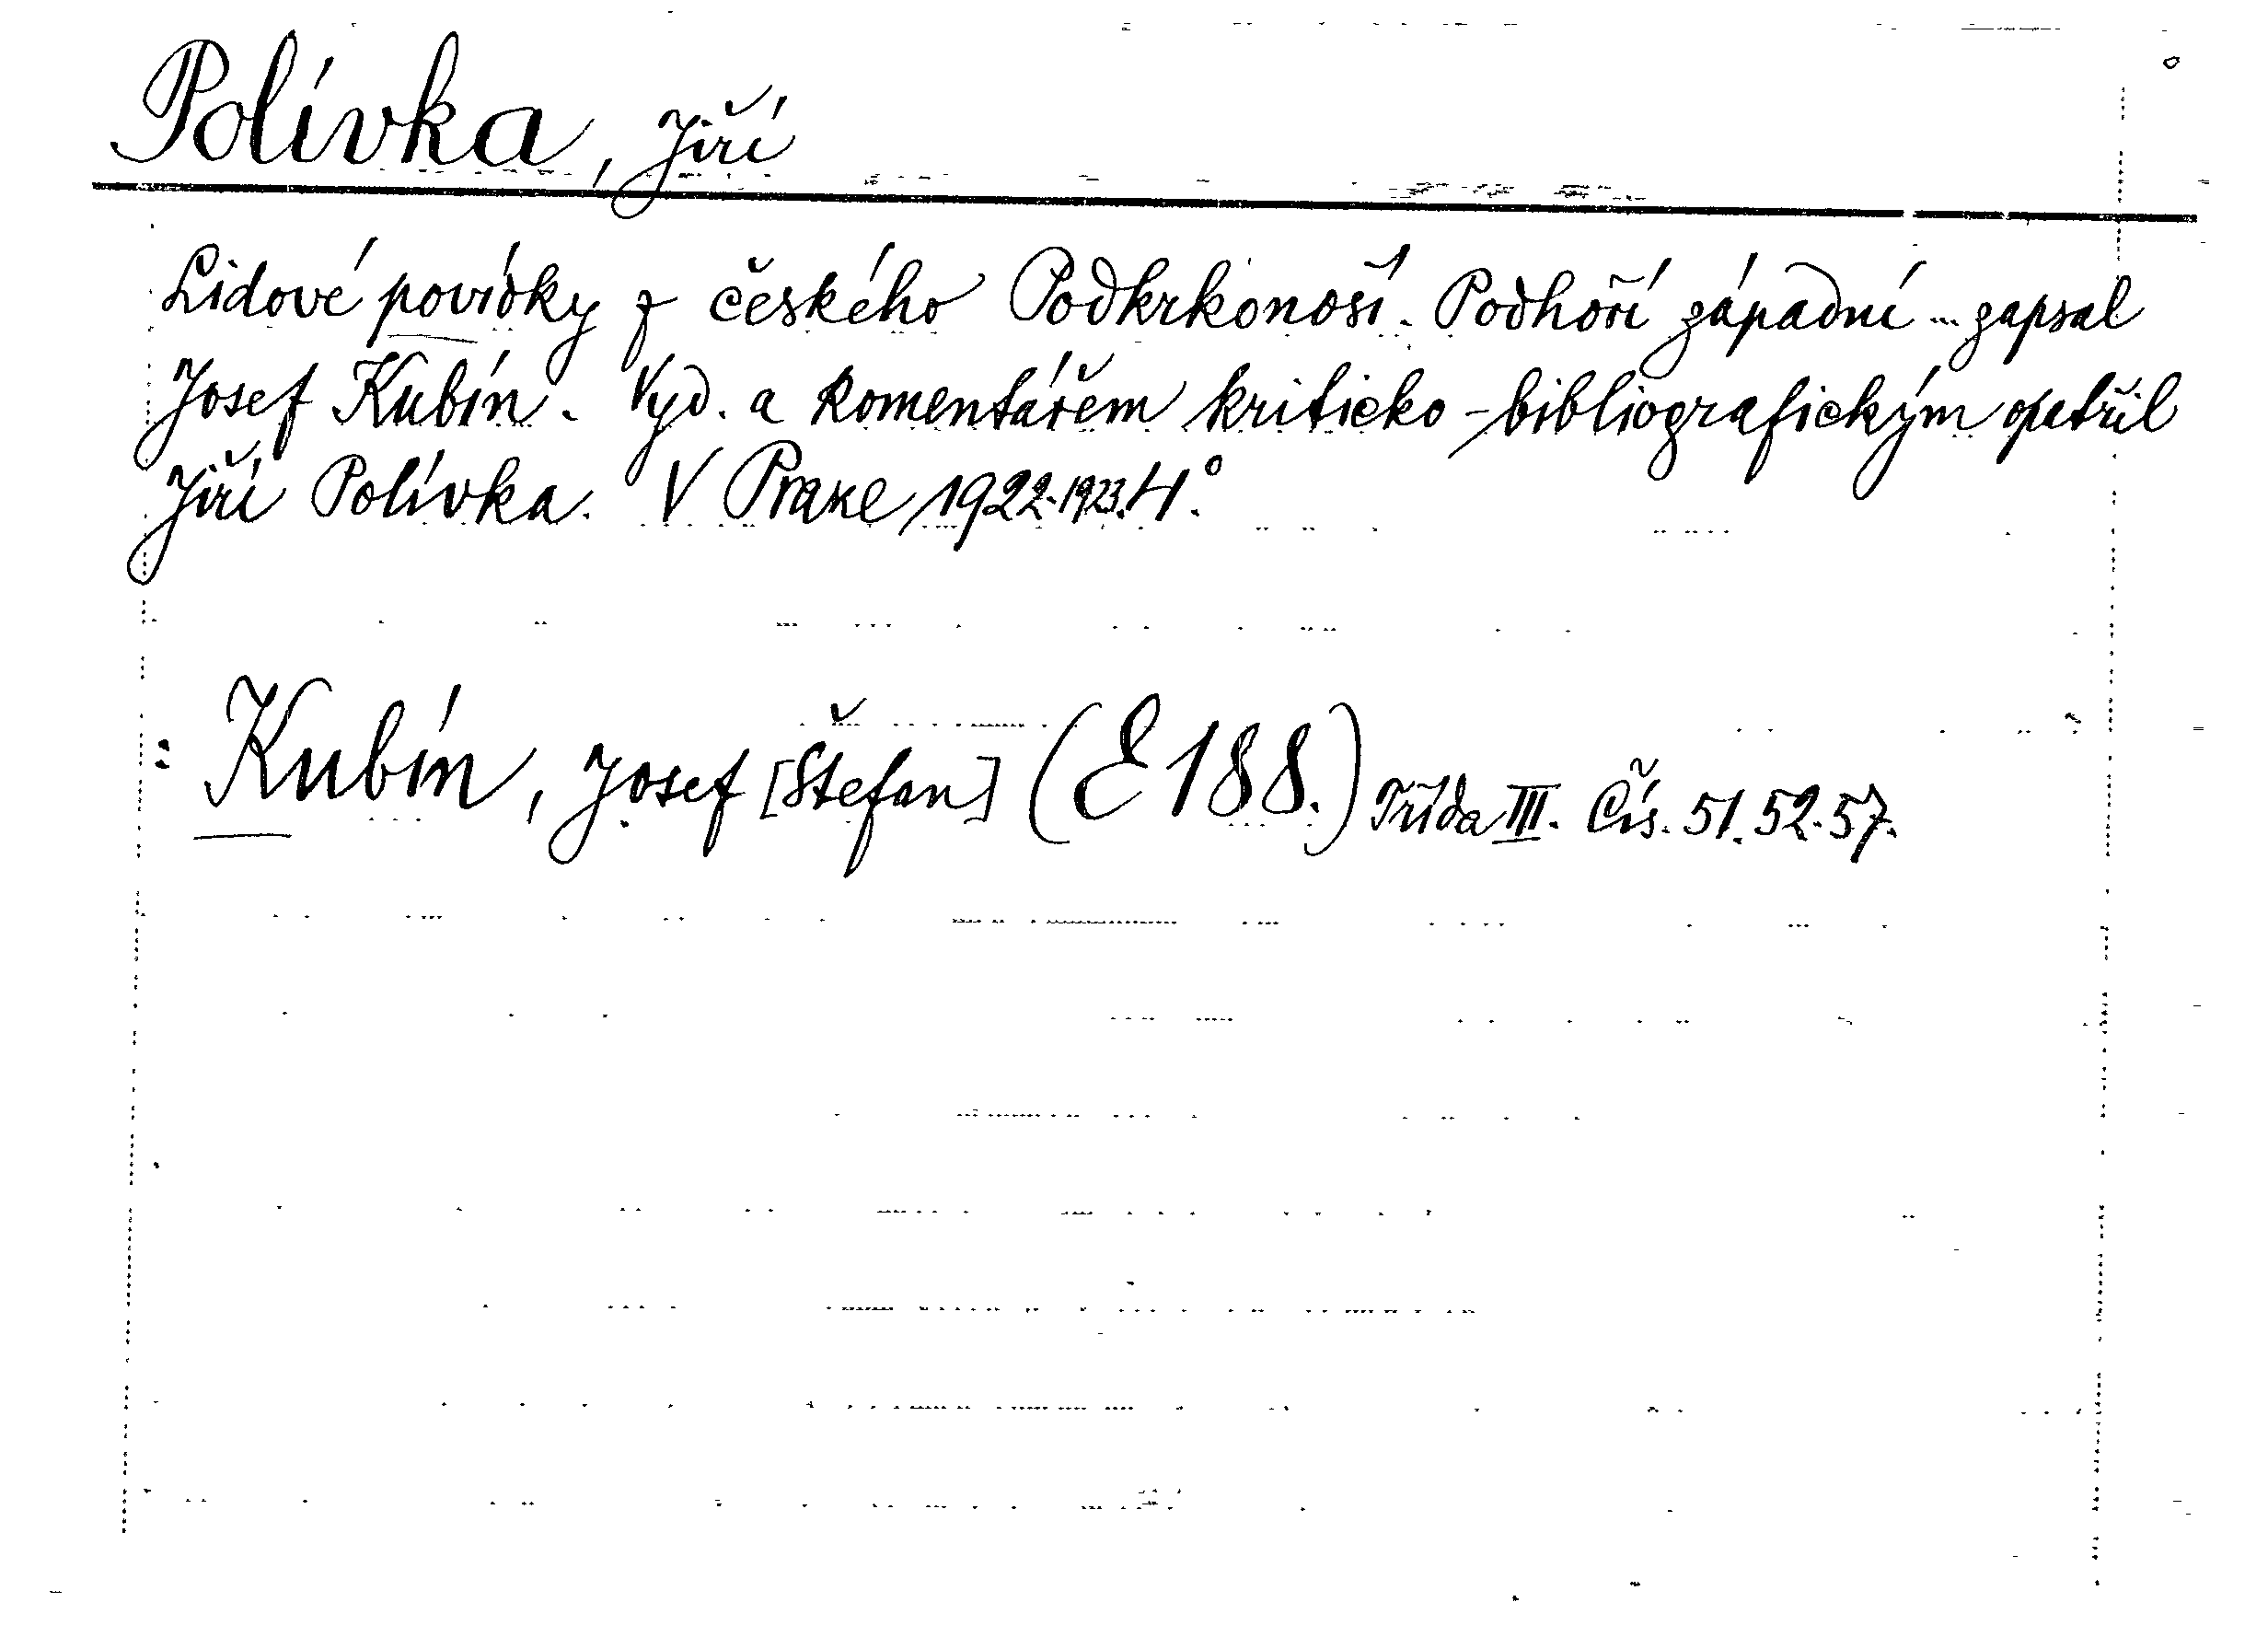 Polívka, Jiří
Lidové povídky z českého Podkrkonoší. Podhoří západní ... zapsal
Josef Kubín. Vyd. a komentářem kriticko-bibliografickým opatřil
Jiří Polívka. V Praze 1922-1923. 4°.
: Kubín, Josef [Štefan] (E 188.) Třída III. Čís. 51. 52. 57.